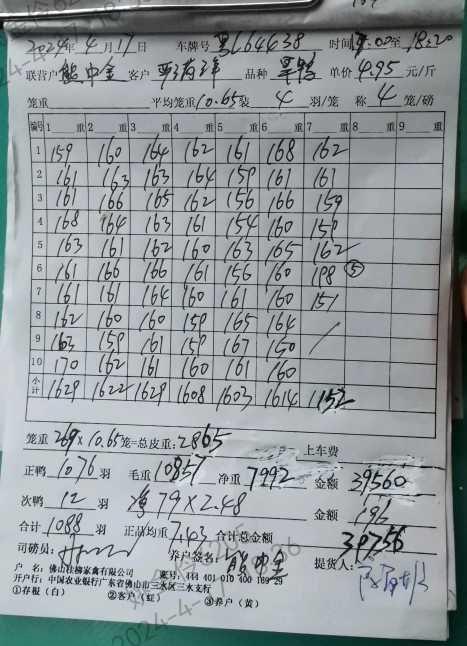 2024年4月17日 车牌号 黑L64438 时间 至18:20
联营户 熊中全 客户 品种 黑鸭 单价4.95元/斤
笼重 平均笼重10.65装 4 羽/笼 称 4 笼/磅
编号 1 重 2 重 3 重 4 重 5 重 6 重 7 重 8 重 9 重
1 159 160 164 162 161 168 162
2 161 163 163 164 159 161 161
3 161 166 165 162 156 166 159
4 168 164 163 161 154 160 159
5 163 161 162 160 163 165 162
6 161 166 166 161 156 160 198 ⑤
7 161 161 164 160 161 160 151
8 162 160 160 159 165 164
9 163 159 161 159 167 150
10 170 162 161 160 161 160
小计 1629 1622 1629 1608 1603 1614 1152
笼重 269×10.65笼=总皮重:2865 上车费
正鸭 1076 羽 毛重 10857 净重 7992 金额 39560
次鸭 12 羽 净79×2.48 金额 196
合计 1088 羽 正品均重 7.43 合计总金额 39756
司磅员: 养户签名: 熊中全 提货人:
户 名:佛山桂柳家禽有限公司 账号:444 401 010 400 169 29
开户行:中国农业银行广东省佛山市三水区三水支行
①存根(白) ②客户(红) ③养户(黄)